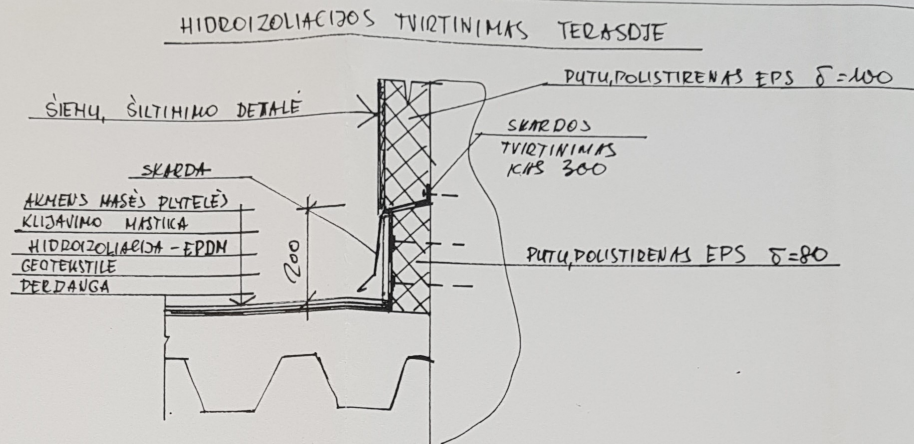 HIDROIZOLIACIJOS TVIRTINIMAS TERASOJE
PUTŲ,POLISTIRENAS EPS δ=100
SIENŲ, ŠILTINIMO DETALĖ
SKARDOS
TVIRTINIMAS
KAS 300
SKARDA
AKMENS MASĖS PLYTELĖS
KLIJAVIMO MASTIKA
HIDROIZOLIACIJA - EPDM
GEOTEKSTILE
PERDANGA
200
PUTŲ,POLISTIRENAS EPS δ=80